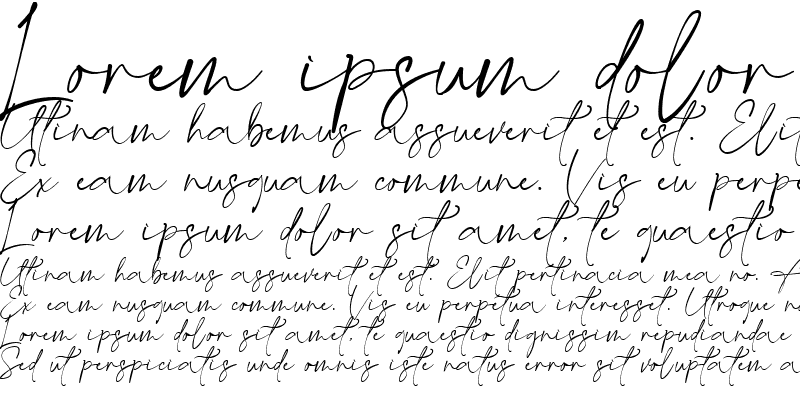 Lorem ipsum dolor
Utinam habemus assueverit et est. Elit
Ex eam nusquam commune. Vis eu perpe
Lorem ipsum dolor sit amet, te quaestio
Utinam habemus assueverit et est. Elit pertinacia mea no. H
Ex eam nusquam commune. Vis eu perpetua interesset. Utroque ne
Lorem ipsum dolor sit amet, te quaestio dignissim repudiandae
Sed ut perspiciatis unde omnis iste natus error sit voluptatem a